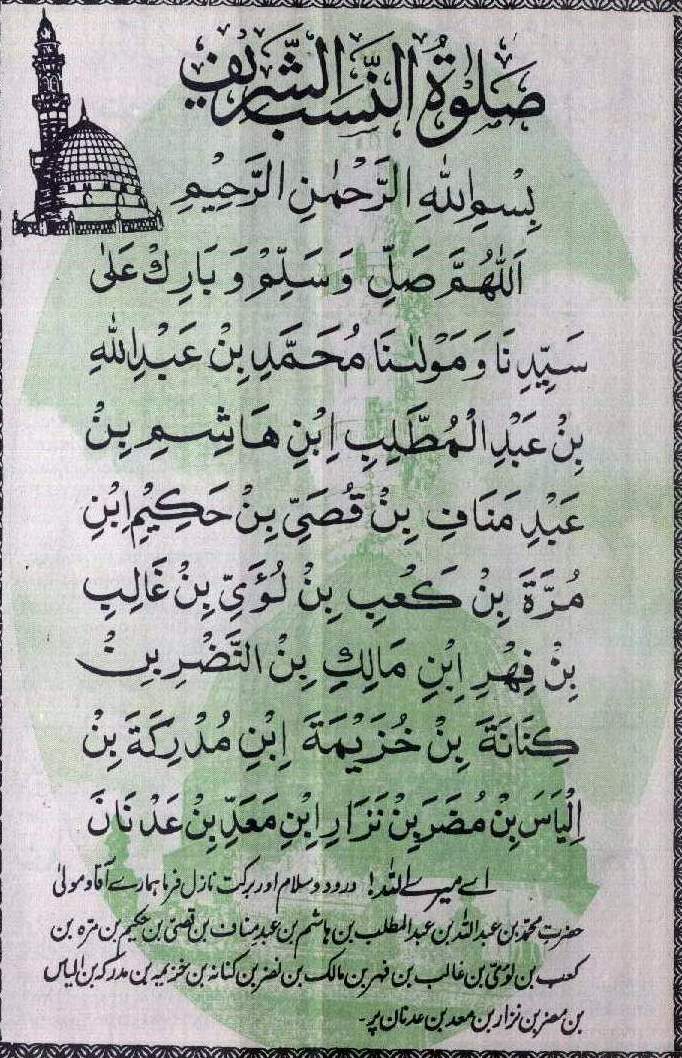 صَلٰوةُ النَّسَبِ الشَّرِيْفِ
بِسْمِ اللهِ الرَّحْمٰنِ الرَّحِيْمِ
اَللّٰهُمَّ صَلِّ وَسَلِّمْ وَبَارِكْ عَلٰى
سَيِّدِنَا وَمَوْلٰىنَا مُحَمَّدِ بْنِ عَبْدِ اللهِ
بْنِ عَبْدِ الْمُطَّلِبِ ابْنِ هَاشِمِ بْنِ
عَبْدِ مَنَافِ بْنِ قُصَيِّ بْنِ حَكِيْمِ ابْنِ
مُرَّةَ بْنِ كَعْبِ بْنِ لُؤَيِّ بْنِ غَالِبِ
بْنِ فِهْرِ ابْنِ مَالِكِ بْنِ النَّضْرِ بْنِ
كِنَانَةَ بْنِ خُزَيْمَةَ ابْنِ مُدْرِكَةَ بْنِ
اِلْيَاسَ بْنِ مُضَرَ بْنِ نَزَارِ ابْنِ مَعَدِّ بْنِ عَدْنَانَ
اے میرے اللہ! درود و سلام اور برکت نازل فرما ہمارے آقا و مولیٰ
حضرت محمّد بن عبد اللہ بن عبد المطلب بن ہاشم بن عبد مناف بن قصیّ بن حکیم بن مرّہ بن
کعب بن لُؤیّ بن غالب بن فہر بن مالک بن نضر بن کنانہ بن خزیمہ بن مدرکہ بن الیاس
بن مضر بن نزار بن معد بن عدنان پر۔